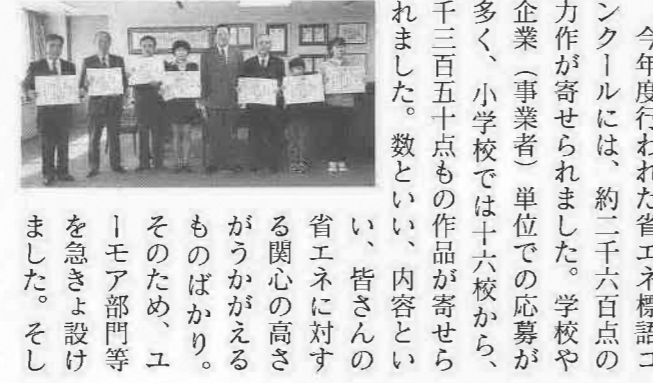 今年度行われた省エネ標語コ
ンクールには、約二千六百点の
力作が寄せられました。学校や
企業（事業者）単位での応募が
多く、小学校では十六校から、
千三百五十点もの作品が寄せら
れました。数といい、内容とい
い、皆さんの
省エネに対す
る関心の高さ
がうかがえる
ものばかり。
そのため、ユ
ーモア部門等
を急きょ設け
ました。そし